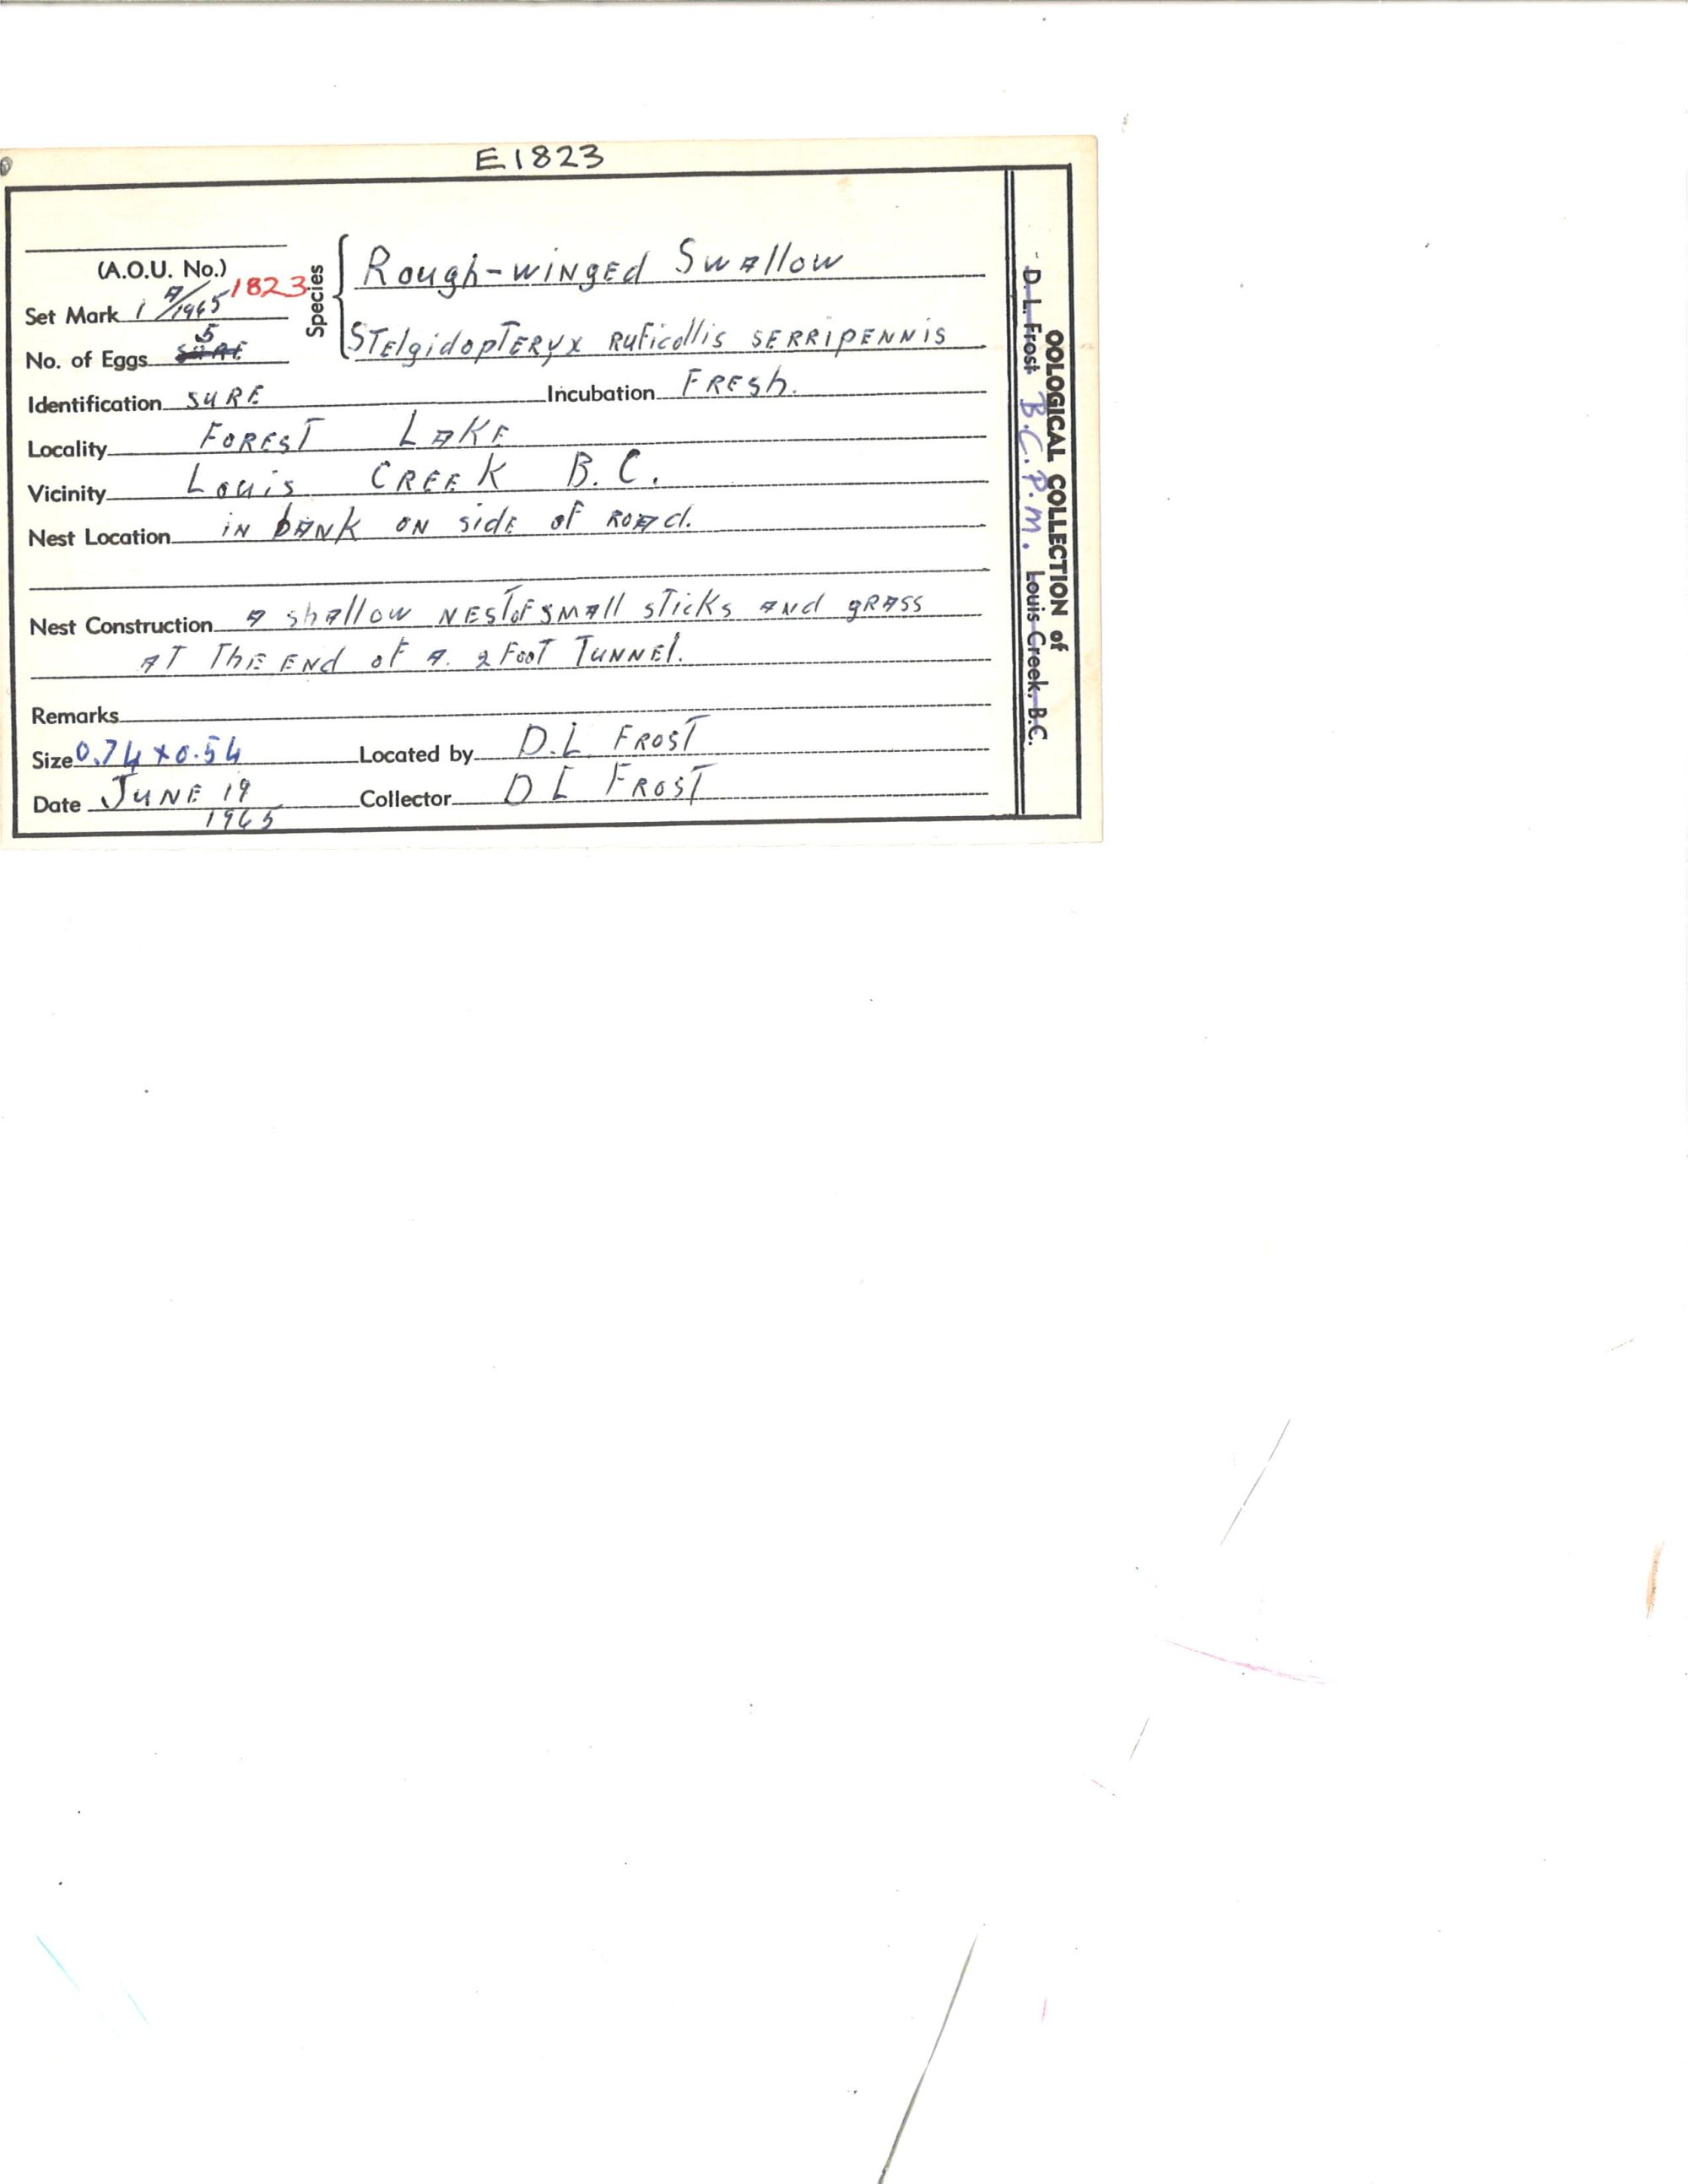 E1823
(A.O.U. No.)
Set Mark 1 A/1965 1823
No. of Eggs 5 SURE
Species
Rough-wiNgEd Swallow
STElgidopTERyx RuFicollis SERRIPENNIS
Identification SURE Incubation FRESh.
Locality FOREST LAKE
Vicinity Louis CREEK B.C.
Nest Location iN bANK ON sidE oF ROAd.
Nest Construction A shAllow NEST oF SMAll sTicKs ANd gRASS
AT ThE ENd oF A 2 FooT TuNNEl.
Remarks
Size 0.74 x 0.54 Located by D.L. FROST
Date JUNE 19 1965 Collector D L FROST
OOLOGICAL COLLECTION of
D. L. Frost B.C.P.M. Louis Creek, B.C.